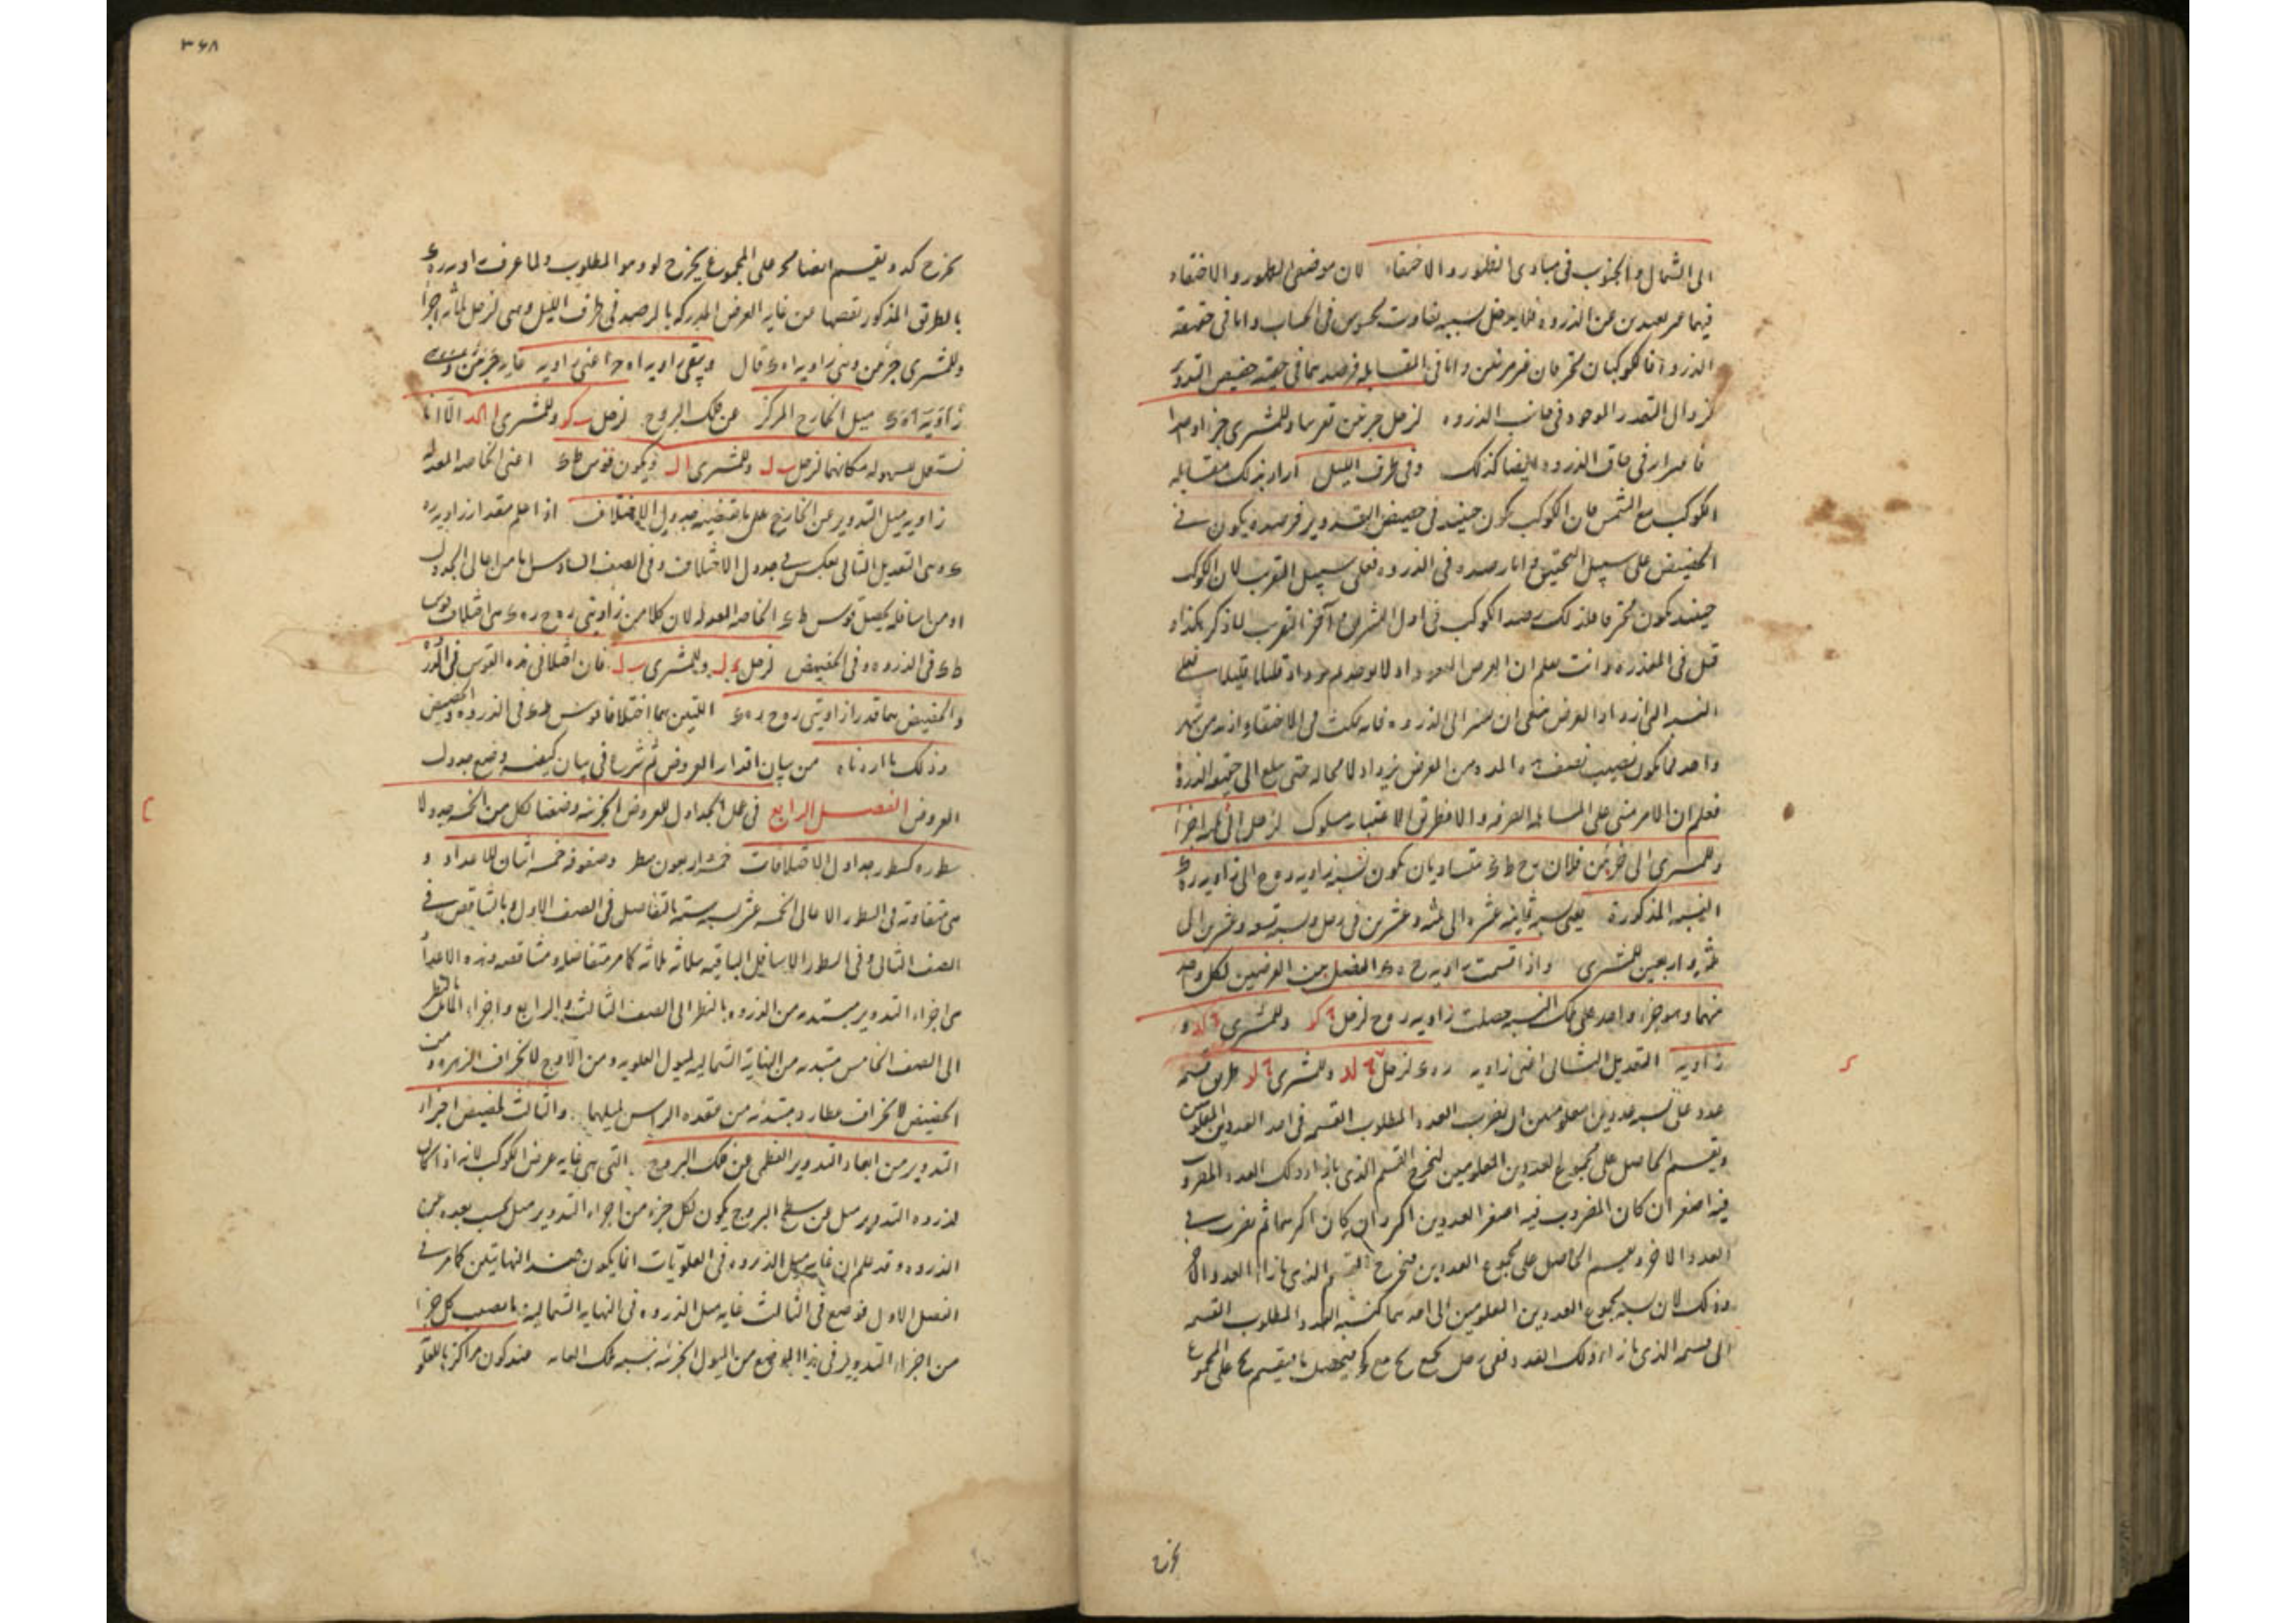 الى الشمال والجنوب فى مبادى الظهور والاختفاء لان موضعى الظهور والاختفاء
فيهما غير بعيدين عن الذروة فلا يدخل بسببه تفاوت محسوس فى الحساب واما فى حقيقة
الذروة فالكوكبان محترقان غير مرئيين واما فى المقابلة فرصدهما فى حقيقة حضيض التدوير
لزوال التعذر الموجود فى جانب الذروة لزحل جزئين تقريبا وللمشترى جزءا واحدا
فى الذروة ايضا كذلك وفى طرف الليل اراد بذلك مقابلة
الكوكب مع الشمس فان الكوكب يكون حينئذ فى حضيض التدوير فرصده يكون فى
الحضيض على سبيل التحقيق واما رصده فى الذروة فعلى سبيل التقريب لان الكوكب
حينئذ يكون محترقا فلذلك رصد الكوكب فى اول التشريق وآخر التغريب لما ذكر هكذا
قيل فى المعذرة وانت تعلم ان العرض
ان الى الذروة فانه يمكث فى الاختفاء ازيد من شهر
واحد فما يكون نصيب نصف هذه المدة من العرض يزداد لا محالة حتى يبلغ الى حقيقة الذروة
فعلم ان الامر مبنى على المساهلة العرفية والا فطريق الاعتبار مسلوك لزحل الى ثلثة اجزاء
وللمشترى الى جزئين فلان رح ط ء متساويان يكون نسبة زاوية ر ه ح الى زاوية ر ه ء
النسبة المذكورة يعنى نسبة ثمانية عشر الى ثلثة وعشرين فى زحل ونسبة تسعة وعشرين الى
ثلثة واربعين للمشترى واذا قسمت زاوية ح ه ء الفضل بين العرضين لكل واحد
منهما وهو جزء واحد على تلك النسبة حصلت زاوية ر ه ح لزحل وللمشترى و
زاوية التعديل الثانى اعنى زاوية ر ه ء لزحل وللمشترى طريق قسمة
عدد على نسبة عددين معلومين ان يضرب العدد المطلوب القسمة فى احد العددين المعلومين
ويقسم الحاصل على مجموع العددين المعلومين ليخرج القسم الذى بازاء ذلك العدد المضروب
فيه اصغر ان كان المضروب فيه اصغر العددين اكبر ان كان اكبرهما ثم يضرب فى
العدد الاخر ويقسم الحاصل على مجموع العددين فيخرج القسم الذى بازاء العدد الاخر
وذلك لان نسبة مجموع العددين المعلومين الى احدهما كنسبة العدد المطلوب القسمة
الى قسمه الذى بازاء ذلك العدد ففى زحل يجمع يح مع كج فيحصل ما يقسم يح على المجموع
يخرج
٣٦٨
يخرج كد ويقسم ايضا كج على المجموع يخرج لو وهو المطلوب ولما عرفت زاوية ر ه ء
بالطريق المذكور نقصها من غاية العرض المدركة بالرصد فى طرف الليل وهى لزحل ثلثة اجزاء
وللمشترى جزئين وهى زاوية ا ه ء قال وبقى زاوية
زاوية ميل الخارج المركز عن فلك البروج لزحل ب كو وللمشترى الا انا
نستعمل بسهولة مكانهما لزحل ب ل وللمشترى ا ل ويكون قوس ط ء اعنى الخاصة المعدلة
زاوية ميل التدوير عن الخارج على ما تقتضيه جدول الاختلاف اذا علم مقدار زاوية ر ه
ء وهى التعديل الثانى يعكس فى جدول الاختلاف وفى الصف السادس اما من اعالى الجدول
او من اسافله يحصل قوس ط ء الخاصة المعدلة لان كلا من زاويتى ر ه ح ر ه ء هى اختلاف قوس
ط ء فى الذروة وفى الحضيض لزحل د ل وللمشترى ب ل فان اختلافى هذه القوس فى الذروة
والحضيض هما قدرا زاويتى ر ه ح ر ه ء اللتين هما اختلافا قوس ط ء فى الذروة والحضيض
وذلك ما اردناه من بيان اقدار العروض ثم شرع فى بيان كيفية وضع جدول
العروض الفصل الرابع فى عمل الجداول للعروض الجزئية وضعنا لكل من الخمسة جدولا
سطوره كسطور جداول الاختلافات خمسة اربعون سطر وصفوفه خمسة اثنان للاعداد و
هى متفاوتة فى السطور الاعالى الخمسة عشر بستة ستة بالتفاضل فى الصف الاول وبالتناقص فى
الصف الثانى وفى السطور الاسافل الباقية بثلاثة ثلاثة كما مر متفاضلة ومتناقصة وهذه الاعداد
هى اجزاء التدوير مبتدئة من الذروة بالنظر الى الصف الثالث والرابع واجزاء المائل بالنظر
الى الصف الخامس مبتدئة من النهاية الشمالية لميول العلوية ومن الاوج لانحراف الزهرة ومن
الحضيض لانحراف عطارد مبتدئة من عقدة الراس لميلهما والثالث لحضيض اجزاء
التدوير من ابعاد التدوير العظمى عن فلك البروج التى هى غاية عرض الكوكب لانه اذا كان
لذروة التدوير ميل عن سطح البروج يكون لكل جزء من اجزاء التدوير ميل بحسب بعده عن
الذروة وقد علم ان غاية ميل الذروة فى العلويات انما يكون عند النهايتين كما مر فى
الفصل الاول فوضع فى الثالث غاية ميل الذروة فى النهاية الشمالية ما يصيب كل جزء
من اجزاء التدوير فى هذا الموضع من الميول الجزئية بنسبة تلك الغاية عند كون مراكزها للعلو